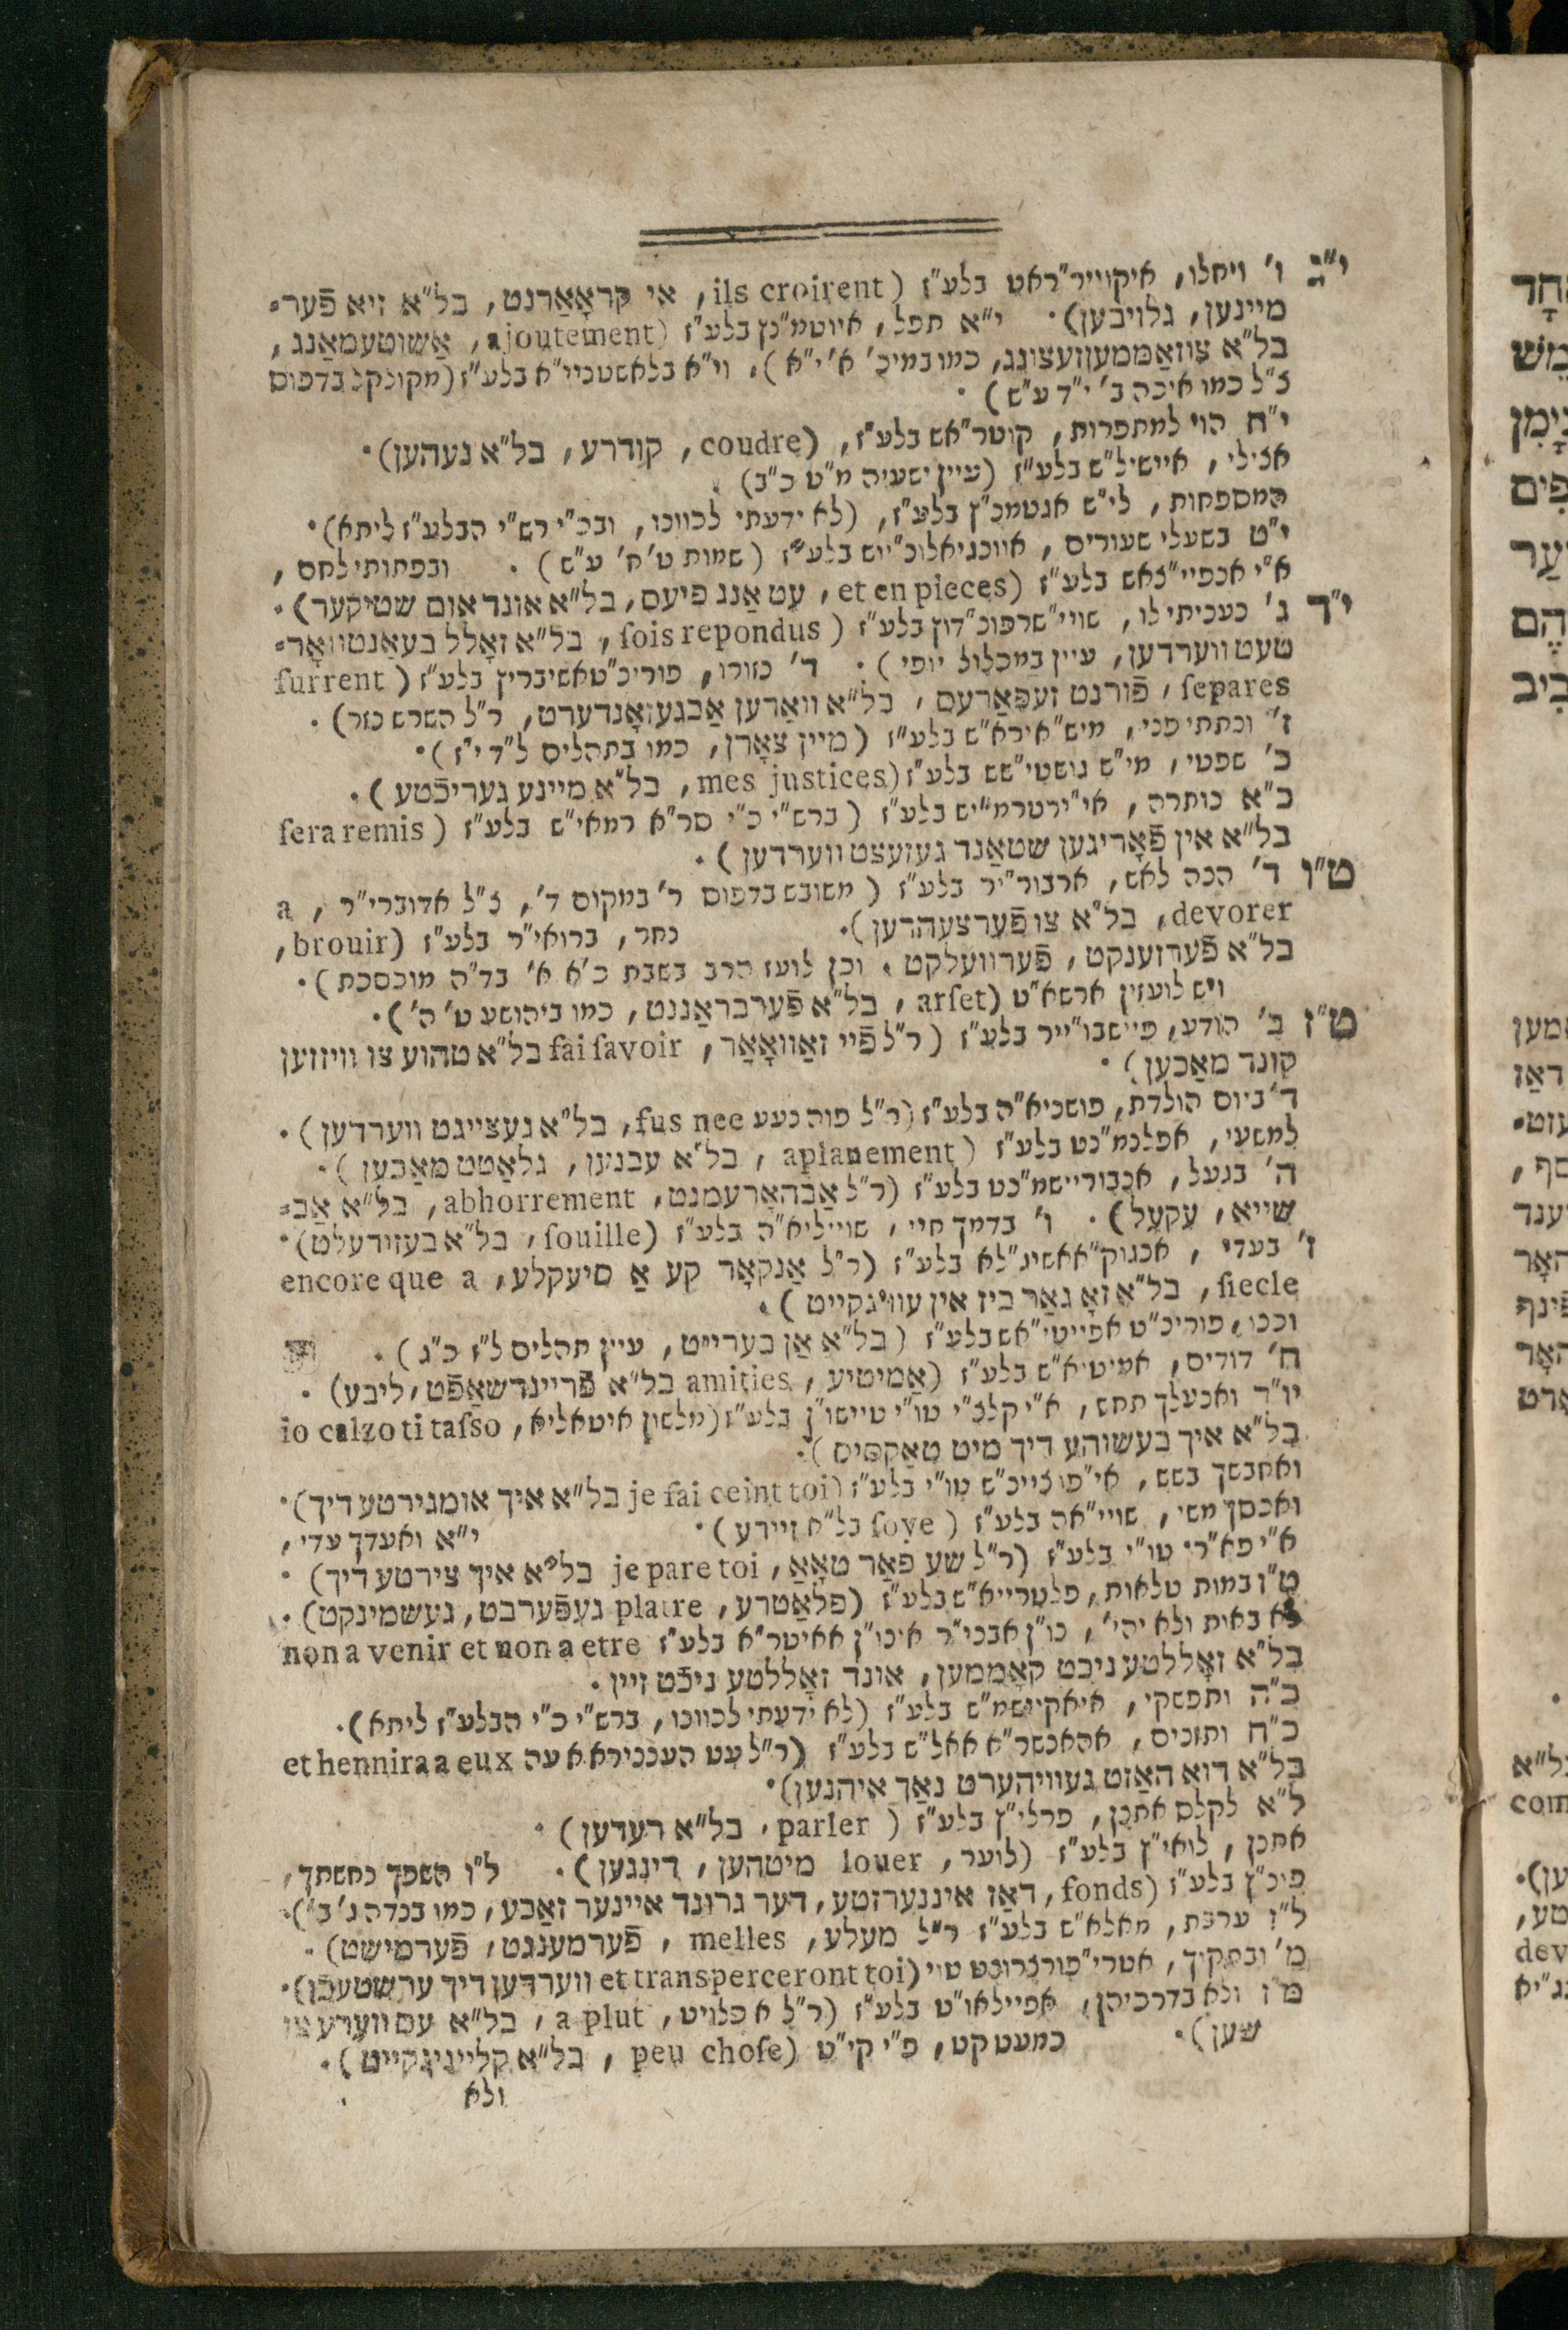 י"ג ו' ויחלו, איקוייר"ראט בלע"ז (ils croirent, אי קראָאַרנט, בל"א זיא פֿער=
מיינען, גלויבען). י"א תפל, איוטמ"נץ בלע"ז (ajoutement, אַשוטעמאַנג,
בל"א צוזאַממענזעצונג, כמו במיכ' א' י"א), וי"א בלאשטנייי"א בלע"ז (מקולקל בדפוס
צ"ל כמו איכה ב' י"ד ע"ש).
י"ח הוי למתפרות, קוטר"אש בלע"ז, (coudre, קודרע, בל"א נעהען).
אצילי, איישיל"ש בלע"ז (עיין ישעיה מ"ט כ"ב)
המספחות, לי"ש אנטמנ"ץ בלע"ז, (לא ידעתי לכוונו, ובכ"י רש"י הבלע"ז ליתא).
י"ט בשעלי שעורים, אוונגיאלונ"ייש בלע"ז (שמות ט' ח' ע"ש). ובפתותי לחם,
א"י אנפיי"צאש בלע"ז (et en pieces, עט אַנג פיעס, בל"א אונד אום שטיקער).
י"ד ג' נענתי לו, שויי"שרפונ"דוץ בלע"ז (sois repondus, בל"א זאָלל בעאַנטוואָר=
טעט ווערדען, עיין במכלול יופי). ד' נזורו, פורינ"טאשיברין בלע"ז (furrent
separes, פֿורנט זעפּאַרעס, בל"א וואַרען אַבגעזאָנדערט, ר"ל השרש נזר).
ז' ונתתי פני, מיש"אירא"ש בלע"ז (מיין צאָרן, כמו בתהלים ל"ד י"ז).
כ' שפטי, מי"ש גושטי"שש בלע"ז (mes justices, בל"א מיינע געריכֿטע).
כ"א נותרה, אי"ירטרמ"יש בלע"ז (ברש"י כ"י סר"א רמאי"ש בלע"ז (sera remis
בל"א אין פֿאָריגען שטאַנד געזעצט ווערדען).
ט"ו ד' הנה לאש, ארבור"יר בלע"ז (משובש בדפוס ר' במקום ד', צ"ל אדוברי"ר, a
devorer, בל"א צו פֿערצעהרען). נחר, ברואי"ר בלע"ז (brouir,
בל"א פֿערזענקט, פֿערוועלקט. וכן לועז הרב בשבת כ"א א' בד"ה מוכסכת).
ויש לועזין ארשא"ט (arset, בל"א פֿערבראַננט, כמו ביהושע ט' ה').
ט"ז ב' הודע, פיישבו"ייר בלע"ז (ר"ל פֿיי זאַוואָאַר, fai savoir בל"א טהוע צו וויזזען
קונד מאַכען).
ד' ביום הולדת, פושניא"ה בלע"ז (ר"ל פוה נעע fus nee, בל"א געצייגט ווערדען).
למשעי, אפלנמ"נט בלע"ז (aplanement, בל"א עבנען, גלאַטט מאַכען).
ה' בגעל, אנבוריישמ"נט בלע"ז (ר"ל אַבהאָרעמנט, abhorrement, בל"א אַב=
שייא, עקעל). ו' בדמך חיי, שוייליא"ה בלע"ז (souille, בל"א בעזודעלט).
ז' בעדי, אנגוק"אאשיג"לא בלע"ז (ר"ל אַנקאָר קע אַ סיעקלע, encore que a
siecle, בל"א זאָ גאַר ביז אין עוויגקייט).
ונכו, פורינ"ט אפייטי"אש בלע"ז (בל"א אַן בערייט, עיין תהלים ל"ז כ"ג).
ח' דודים, אמיטיא"ש בלע"ז (אַמיטיע, amities בל"א פֿריינדשאַפֿט, ליבע).
יו"ד ואנעלך תחש, א"י קלצ"י טו"י טיישו"ן בלע"ז (מלשון איטאליא, io calzo ti tasso
בל"א איך בעשוהע דיך מיט טאַקסיס).
ואחבשך בשש, אי"פוצייכ"ש טו"י בלע"ז (je sai ceint toi בל"א איך אומגירטע דיך).
ואכסך משי, שויי"אה בלע"ז (soye בל"א זיידע). י"א ואעדך עדי,
א"י פא"רי טו"י בלע"ז (ר"ל שע פאַר טאָאַ, je pare toi בל"א איך צירטע דיך).
ט"ו במות טלאות, פלטרייא"ש בלע"ז (פלאַטרע, platre געפֿערבט, געשמינקט).
לא באות ולא יהי', נו"ן אבני"ר אינו"ן אאיטר"א בלע"ז non a venir et non a etre
בל"א זאָללטע ניכט קאָממען, אונד זאָללטע ניכֿט זיין.
כ"ה ותפשקי, איאקישמ"ש בלע"ז (לא ידעתי לכוונו, ברש"י כ"י הבלע"ז ליתא).
כ"ח ותזנים, אהאנשר"א אאל"ש בלע"ז (ר"ל עט העננירא א עה et hennira a eux
בל"א דוא האַזט געוויהערט נאַך איהנען).
ל"א לקלס אתנן, פרלי"ץ בלע"ז (parler, בל"א רעדען).
אתנן, לואי"ץ בלע"ז (לוער, louer מיטהען, דינגען). ל"ו השפך נחשתך,
פינ"ץ בלע"ז (fonds, דאַז איננערזטע, דער גרונד איינער זאַכע, כמו בנדה ג' ב').
ל"ז ערבת, מאלא"ש בלע"ז ר"ל מעלע, melles, פֿערמענגט, פֿערמישט).
מ' ובתקוך, אטרי"פורצרונט טוי (et transperceront toi ווערדען דיך ערשטעכֿן).
מ"ז ולא בדרכיהן, אפיילאו"ט בלע"ז (ר"ל א פלויט, a plut, בל"א עס ווערע צו
שען). כמעט קט, פ"י קי"ט (peu chose, בל"א קלייניגקייט).
ולא